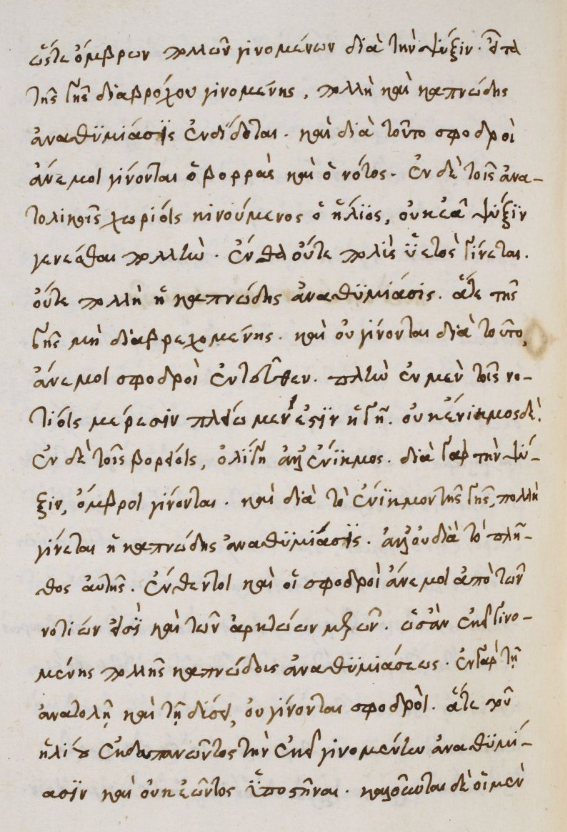 ὥστε ὄμβρων πολλῶν γινομένων διὰ τὴν ψύξιν. ἔτι
τῆς γῆς διαβρόχου γινομένης, πολλὴ καὶ καπνώδης
ἀναθυμίασις ἐκδίδοται. καὶ διὰ τοῦτο σφοδροὶ
ἄνεμοι γίνονται ὁ βορρᾶς καὶ ὁ νότος. ἐν δὲ τοῖς ἀνα-
τολικοῖς χωρίοις κινούμενος ὁ ἥλιος, οὐκ ἐᾶ ψύξιν
γενέσθαι πολλὴν. ἔνθα οὔτε πολὺς ὑετὸς γίνεται.
οὔτε πολλὴ ἡ καπνώδης ἀναθυμίασις. ἅτε τῆς
γῆς μὴ διαβρεχομένης. καὶ οὐ γίνονται διὰ τοῦτο,
ἄνεμοι σφοδροὶ ἐντεῦθεν. πλὴν ἐν μὲν τοῖς νο-
τίοις μέρεσιν πλείω μὲν ἐστὶν ἡ γῆ. οὐκ ἔνικμος δέ.
ἐν δὲ τοῖς βορείοις, ὀλίγη ἀλλ' ἔνικμος. διὰ γὰρ τὴν ψύ-
ξιν, ὄμβροι γίνονται. καὶ διὰ τὸ ἔνικμον τῆς γῆς, πολλὴ
γίνεται ἡ καπνώδης ἀναθυμίασις. ἀλλ' οὐ διὰ τὸ πλῆ-
θος αὐτῆς. ἔνθεν τοι καὶ οἱ σφοδροὶ ἄνεμοι ἀπὸ τῶν
νοτίων εἰσὶ καὶ τῶν ἀρκτώων μερῶν. ὡσὰν ἐκεῖ γινο-
μένης πολλῆς καπνώδους ἀναθυμιάσεως. ἐν γὰρ τῇ
ἀνατολῇ καὶ τῇ δύσει, οὐ γίνονται σφοδροὶ. ἅτε τοῦ
ἡλίου ἐκδαπανῶντος τὴν ἐκεῖ γινομένην ἀναθυμί-
ασιν καὶ οὐκ ἐῶντος ὑποστῆναι. καλοῦνται δὲ οἱ μὲν